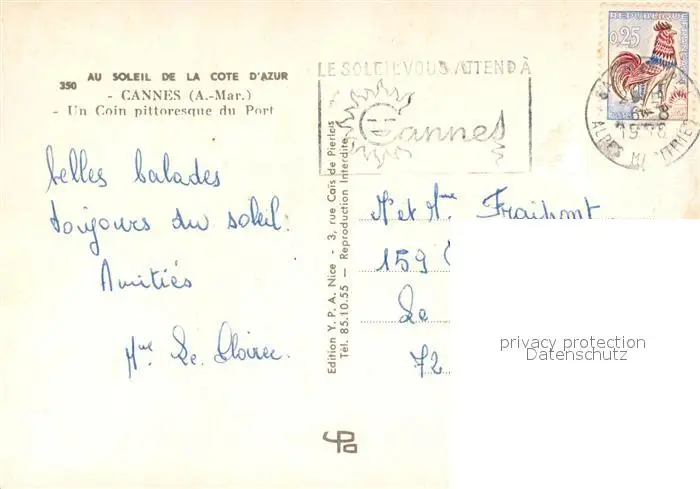 350 AU SOLEIL DE LA COTE D'AZUR
- CANNES (A.-Mar.) -
- Un Coin pittoresque du Port
belles balades
toujours du soleil.
Amitiés
Mme Le
Edition Y. P. A. Nice - 3, rue Caïs de Pierlas
Tél. 85.10.55 — Reproduction Interdite
LE SOLEIL VOUS ATTEND À
Cannes
REPUBLIQUE
0,25
ALPES MARITIMES
M et Mme Fraipont
159
Le
72
privacy protection
Datenschutz